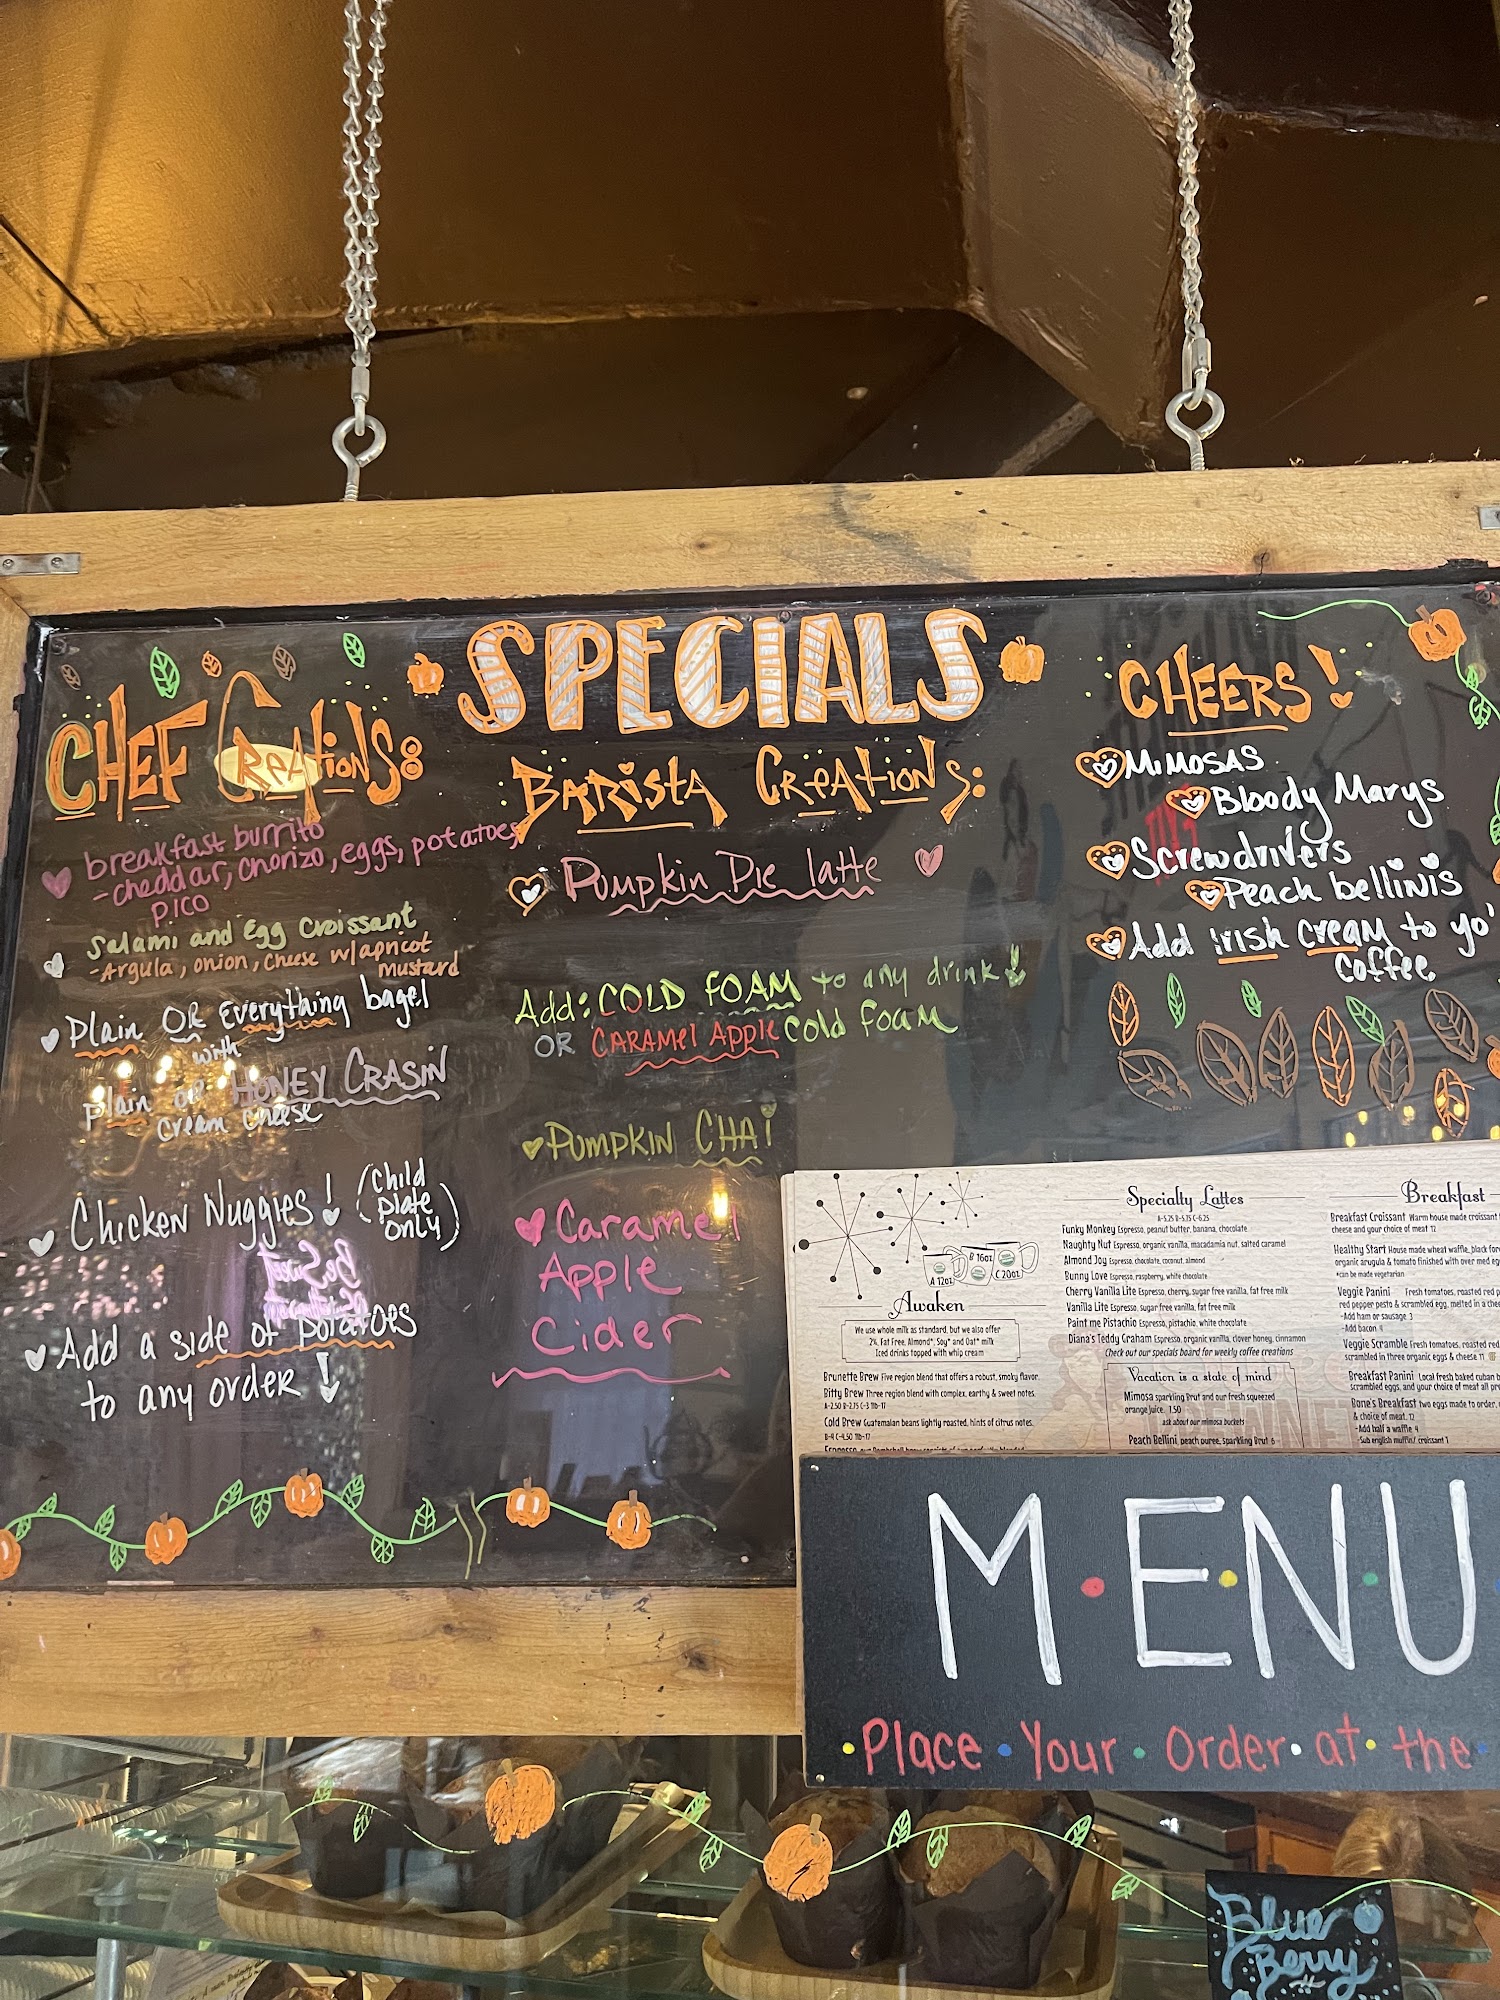 SPECIALS
CHEF CREATIONS:
breakfast burrito
-cheddar, chorizo, eggs, potatoes,
pico
Salami and Egg Croissant
-Argula, onion, cheese w/apricot
mustard
Plain OR Everything bagel
with
plain or HONEY CRASIN
cream cheese
Chicken Nuggies! (Child
Plate
only)
Add a side of potatoes
to any order!
BARISTA CREATIONS:
Pumpkin Pie latte
Add: COLD FOAM to any drink!
OR CARAMEL APPLE cold foam
PUMPKIN CHAI
Caramel
Apple
Cider
CHEERS!
MIMOSAS
Bloody Marys
Screwdrivers
Peach bellinis
Add irish cream to yo'
coffee
A 12oz B 16oz C 20oz
Awaken
We use whole milk as standard, but we also offer
2% Fat Free, Almond*, Soy* and Oat* milk
Iced drinks topped with whip cream
Brunette Brew Five region blend that offers a robust, smoky flavor.
Bitty Brew Three region blend with complex, earthy & sweet notes.
A-2.50 B-2.75 C-3 1lb-17
Cold Brew Guatemalan beans lightly roasted, hints of citrus notes.
B-4 C-4.50 1lb-17
Specialty Lattes
A-5.25 B-5.75 C-6.25
Funky Monkey Espresso, peanut butter, banana, chocolate
Naughty Nut Espresso, organic vanilla, macadamia nut, salted caramel
Almond Joy Espresso, chocolate, coconut, almond
Bunny Love Espresso, raspberry, white chocolate
Cherry Vanilla Lite Espresso, cherry, sugar free vanilla, fat free milk
Vanilla Lite Espresso, sugar free vanilla, fat free milk
Paint me Pistachio Espresso, pistachio, white chocolate
Diana's Teddy Graham Espresso, organic vanilla, clover honey, cinnamon
Check out our specials board for weekly coffee creations
Vacation is a state of mind
Mimosa sparkling Brut and our fresh squeezed
orange juice. 7.50
ask about our mimosa buckets
Peach Bellini peach puree, sparkling Brut 6
Breakfast
Breakfast Croissant Warm house made croissant
cheese and your choice of meat 12
Healthy Start House made wheat waffle, black
organic arugula & tomato finished with over med
*can be made vegetarian
Veggie Panini Fresh tomatoes, roasted red
red pepper pesto & scrambled egg, melted in a
-Add ham or sausage 3
-Add bacon 4
Veggie Scramble Fresh tomatoes, roasted red
scrambled in three organic eggs & cheese 11
Breakfast Panini Local fresh baked cuban
scrambled eggs, and your choice of meat all
Bone's Breakfast two eggs made to order,
& choice of meat. 12
-Add half a waffle 4
-Sub english muffin/ croissant 1
MENU
Place Your Order at the
Blue
Berry